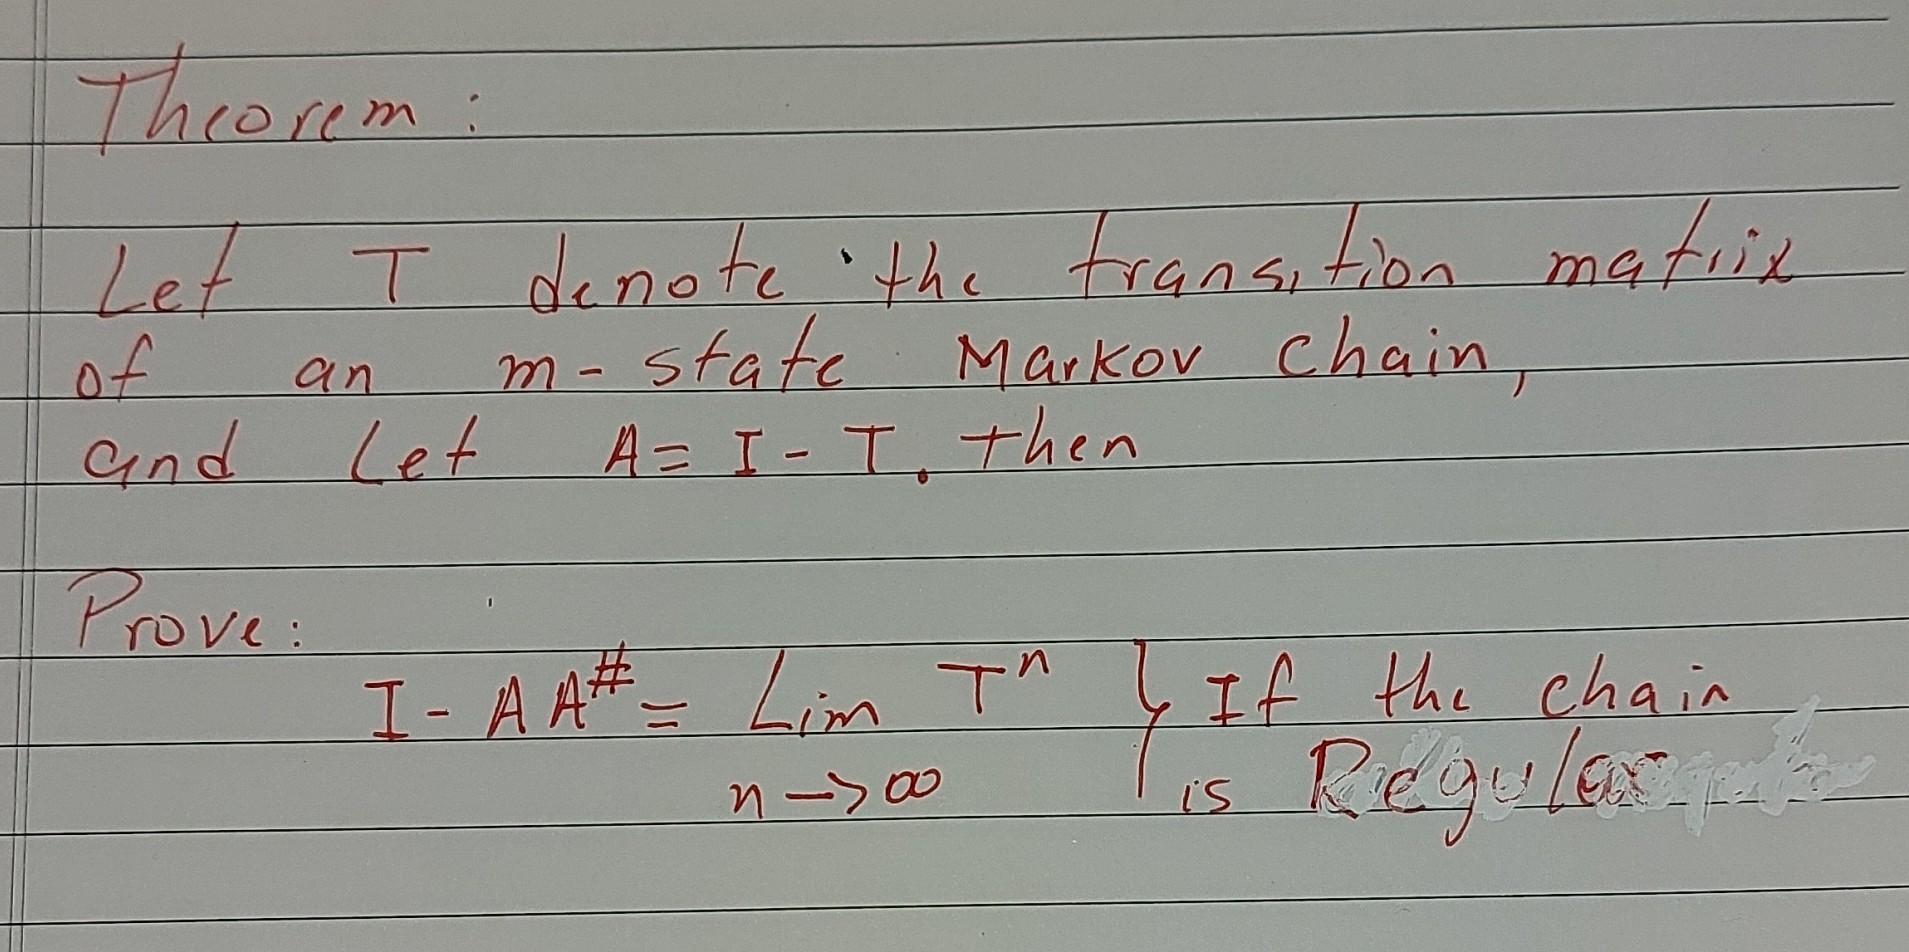 Theorem:
Let T denote the transition matrix
of an m-state Markov chain,
and Let A = I - T. then
Prove:
I - A A^# = Lim T^n } If the chain
n -> ∞ is Regular